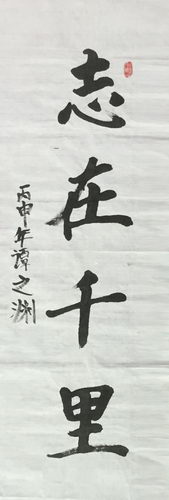 志在千里
丙申年谭之渊